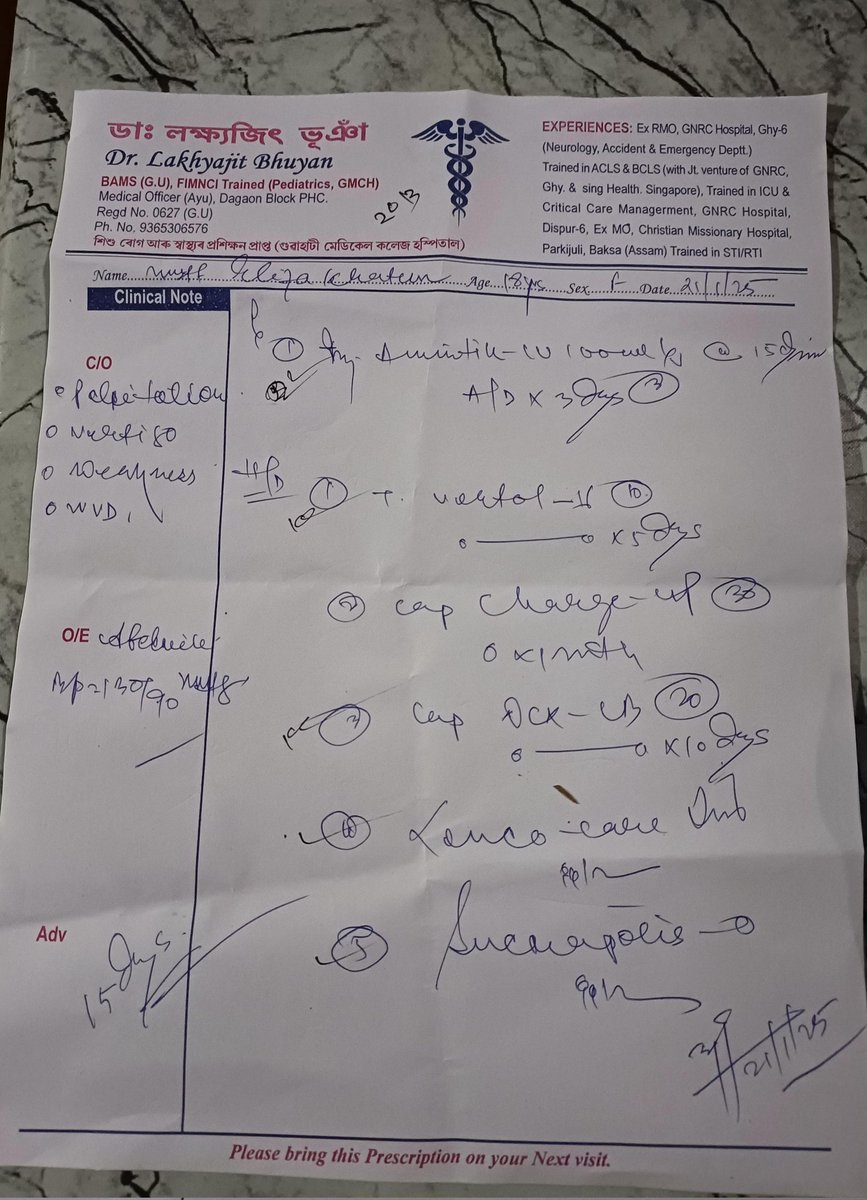 ডাঃ লক্ষ্যজিৎ ভূঞা
Dr. Lakhyajit Bhuyan
BAMS (G.U), FIMNCI Trained (Pediatrics, GMCH)
Medical Officer (Ayu), Dagaon Block PHC.
Regd No. 0627 (G.U)
Ph. No. 9365306576
শিশু ৰোগ আৰু স্বাস্থ্যৰ প্ৰশিক্ষন প্ৰাপ্ত (গুৱাহাটী মেডিকেল কলেজ হস্পিতাল)
2013
EXPERIENCES: Ex RMO, GNRC Hospital, Ghy-6
(Neurology, Accident & Emergency Deptt.)
Trained in ACLS & BCLS (with Jt. venture of GNRC,
Ghy. & sing Health. Singapore), Trained in ICU &
Critical Care Managerment, GNRC Hospital,
Dispur-6, Ex MO, Christian Missionary Hospital,
Parkijuli, Baksa (Assam) Trained in STI/RTI
Name Eliza Khatun Age 18 yrs Sex F Date 21/1/25
Clinical Note
C/O
Palpitation
Vertigo
Weakness
WVD
O/E Afebrile
BP=130/90 mmHg
Adv
15 days
① Inj. 100 @ 15
A/D x 3 days ③
① T. ⑩
x 5 days
② Cap Charge-up ㉚
x 1 month
③ Cap ⑳
x 10 days
④ Leuco-care
⑤
21/1/25
Please bring this Prescription on your Next visit.